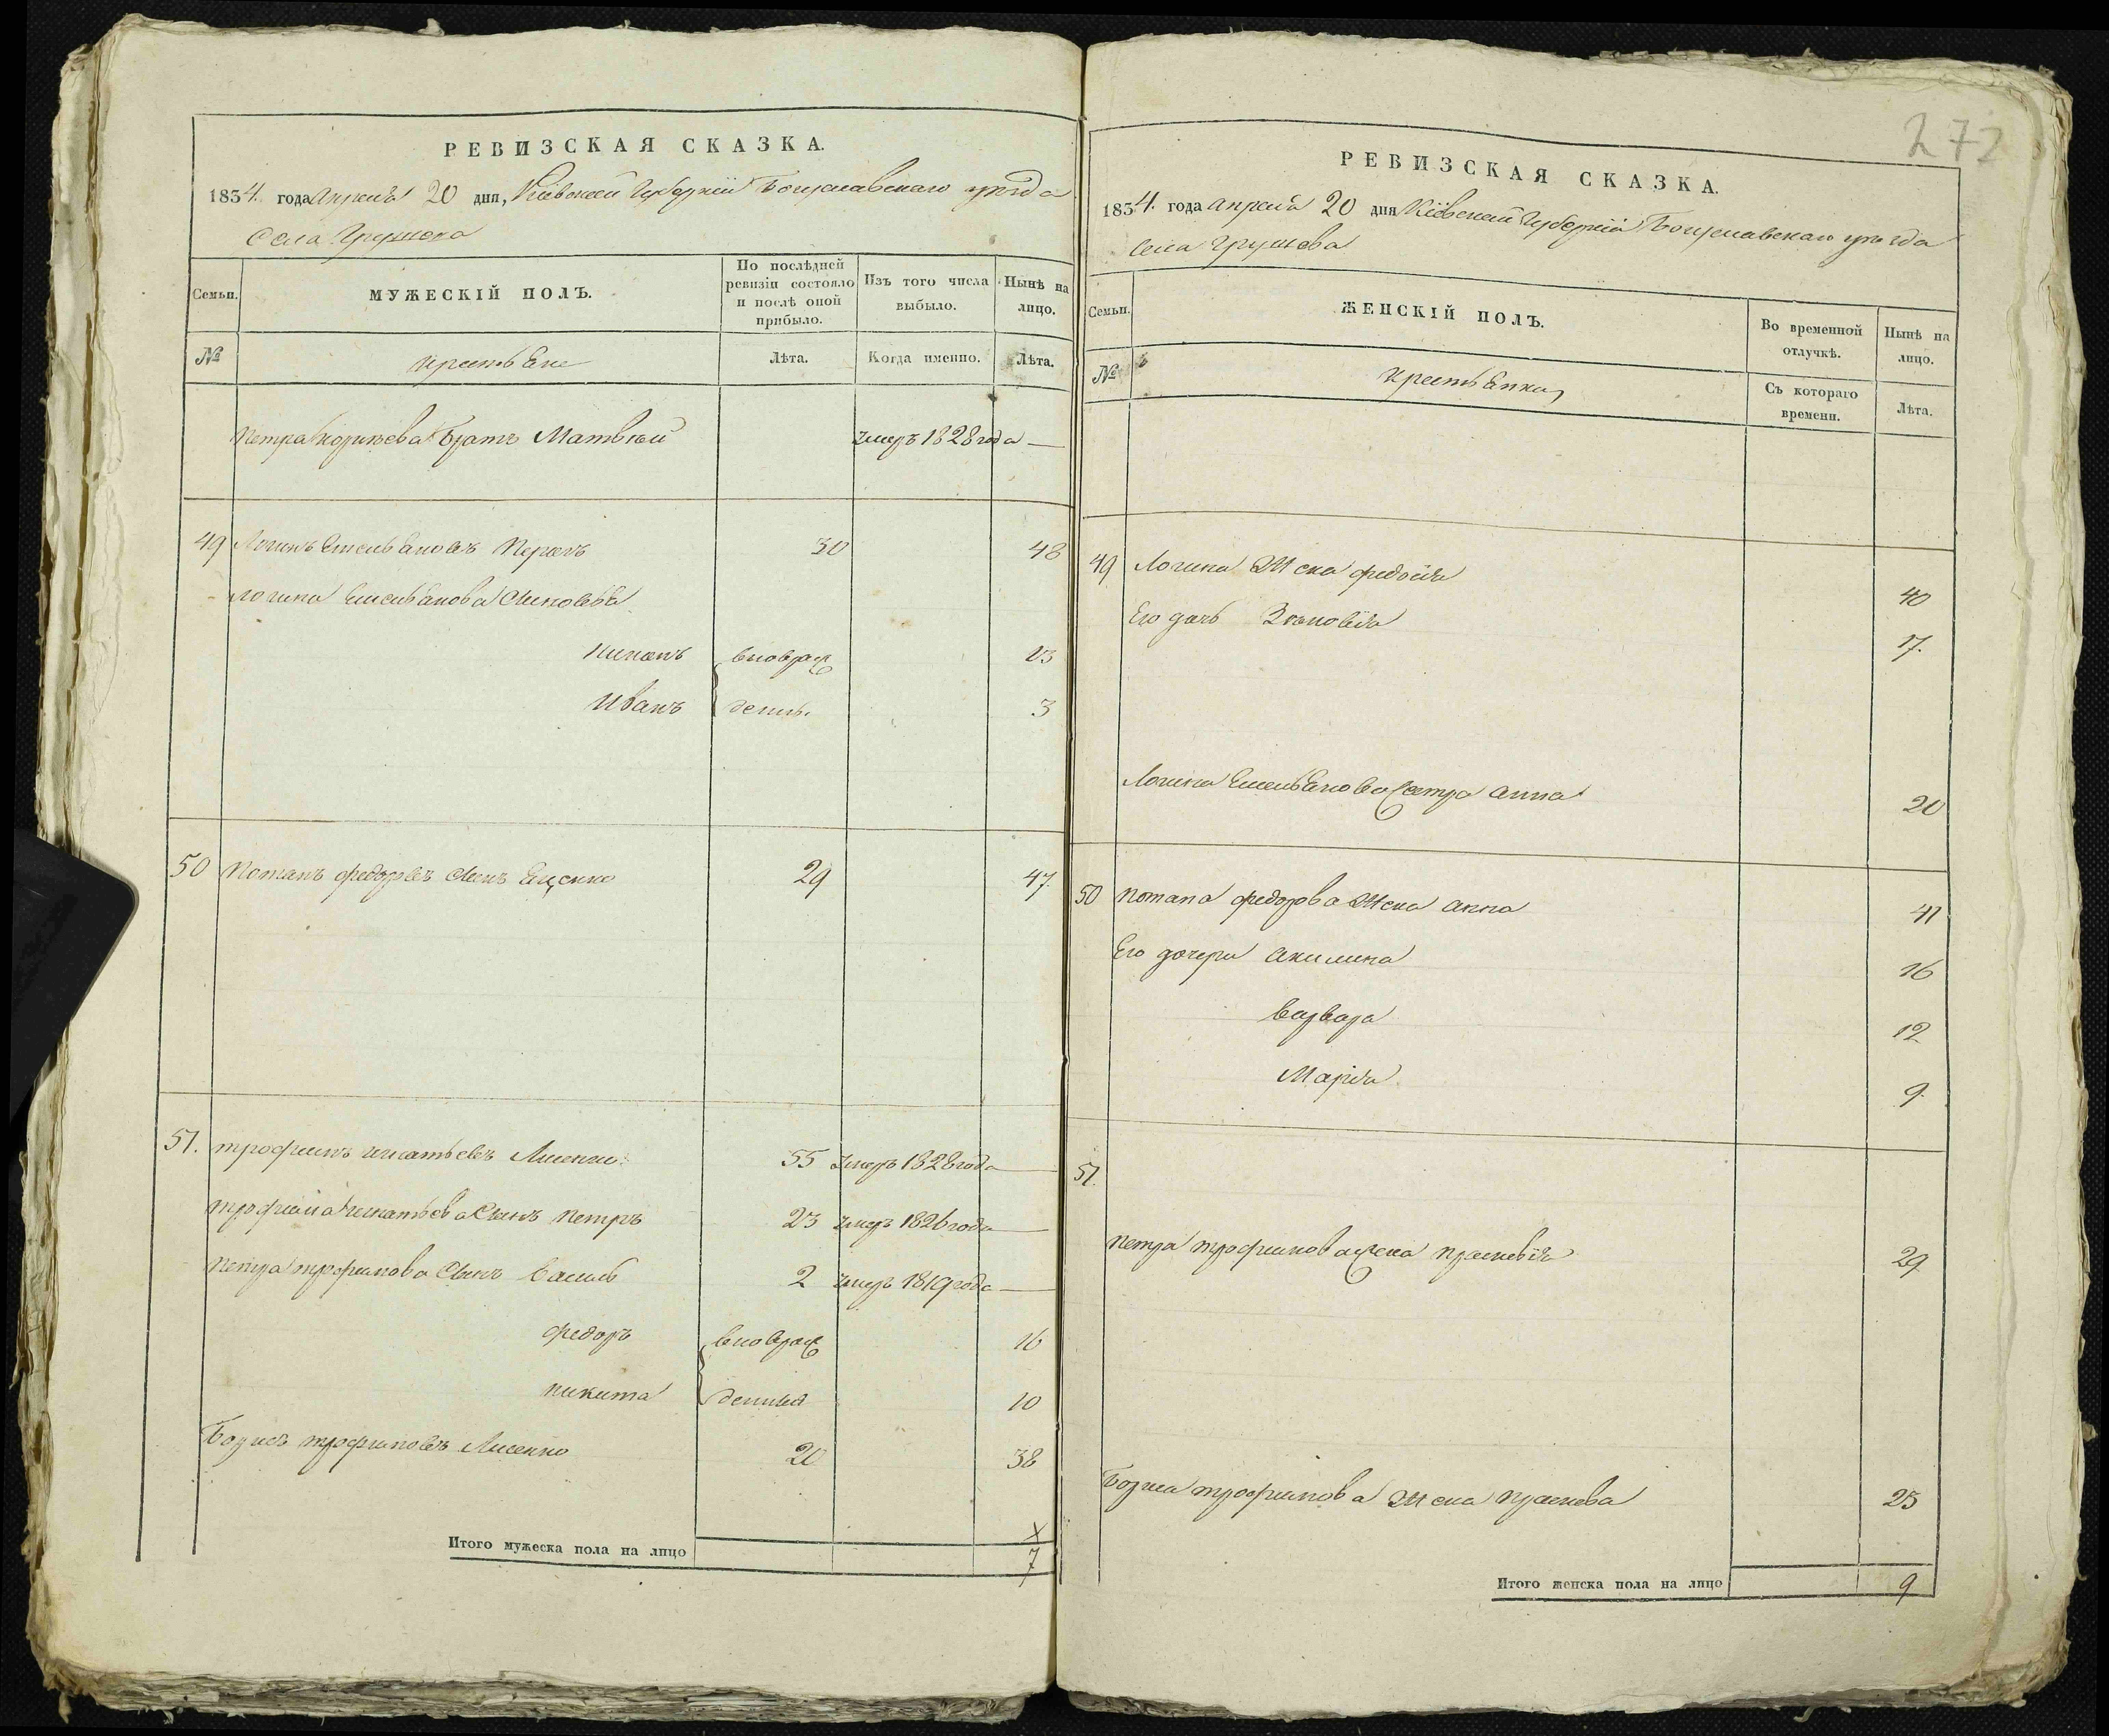 РЕВИЗСКАЯ СКАЗКА.
1834. года апреля 20 дня, Кіевской Губерніи Богуславскаго уезда
Села Грушева
Семьи.
МУЖЕСКІЙ ПОЛЪ.
По послѣдней ревизіи состояло и послѣ оной прибыло.
Изъ того числа выбыло.
Нынѣ на лицо.
№
крестьяне
Лѣта.
Когда именно.
Лѣта.
Петра Братъ Матвѣй умеръ 1828 года —
49 30 48
Логина Емельянова Сыновья
вновьрож 13
Иванъ денны. 3
50 Потапъ федоровъ Сынъ 29 47.
51. трофимъ игнатьевъ Лисенко 55 умеръ 1828 года —
трофима игнатьева Сынъ петръ 23 умеръ 1826 года —
петра трофимова Сынъ василь 2 умеръ 1819 года —
федоръ вновьрож 16
никита денныя 10
Борисъ трофимовъ Лисенко 20 38
Итого мужеска пола на лицо 7
272
РЕВИЗСКАЯ СКАЗКА.
1834. года апреля 20 дня Кіевской Губерніи Богуславскаго уезда
села грушева
Семьи.
ЖЕНСКІЙ ПОЛЪ.
Во временной отлучкѣ.
Нынѣ на лицо.
№
крестьянки
Съ котораго времени.
Лѣта.
49 Логина Жена 40
Его дочь Зѣновія 17.
Логина Емельянова Сестра анна 20
50 потапа федорова Жена анна 41
Его дочери акилина 16
варвара 12
Марія 9.
51.
петра трофимова Жена 29
Бориса трофимова Жена 25
Итого женска пола на лицо 9